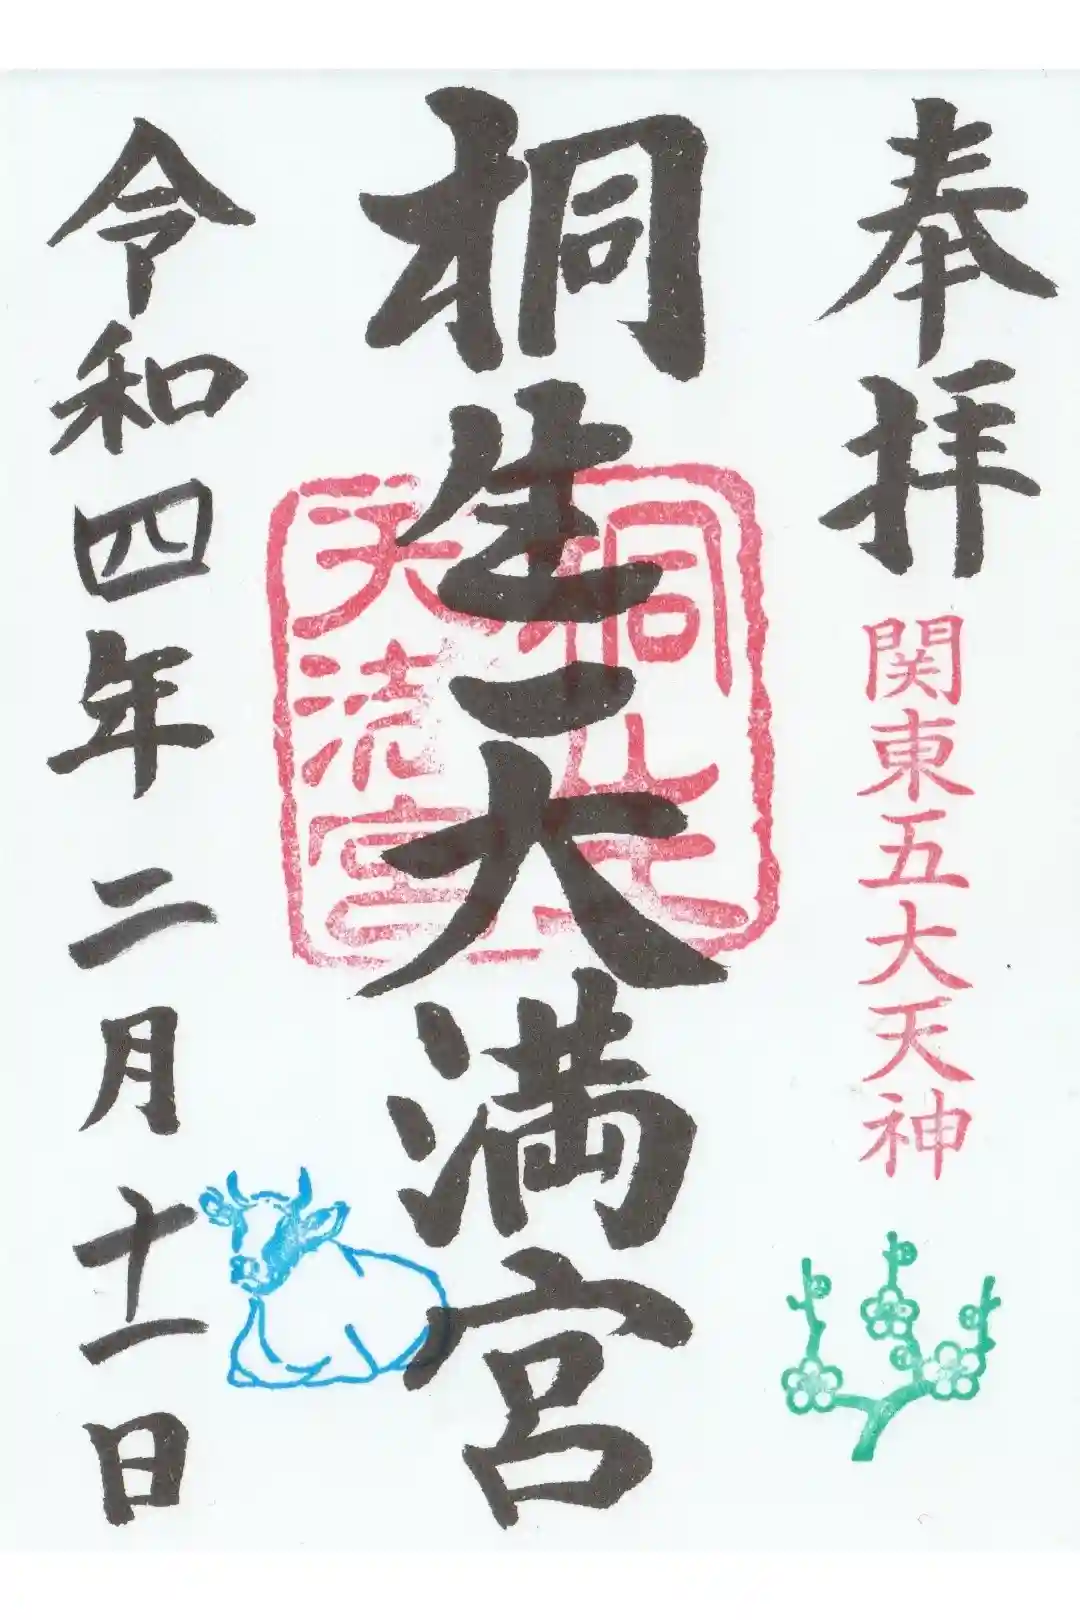 奉拝
関東五大天神
桐生天満宮
桐生
天満宮
令和四年二月十一日